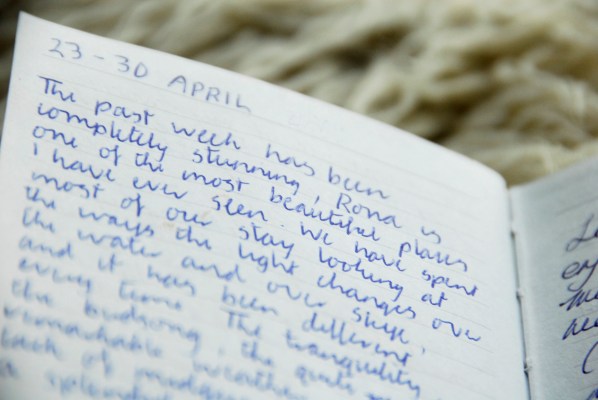 23 - 30 APRIL
The past week has been
completely stunning! Rona is
one of the most beautiful places
I have ever seen. We have spent
most of our stay looking at
the ways the light changes over
the water and over skye,
and it has been different
every time. The tranquility
the birdsong, the quite
remarkable weather
lack of
a splendid